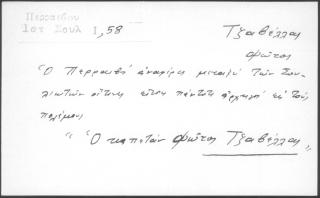 Περραιβού
Ιστ Σουλ Ι, 58
Τζαβέλλας
Φώτος
"Ο Περραιβός αναφέρει μεταξύ των Σου-
λιωτών οίτινες είναι πάντοτε αρχηγοί εις τούς
πολέμους
" Ὁ καπετάν Φώτος Τζαβέλλας "